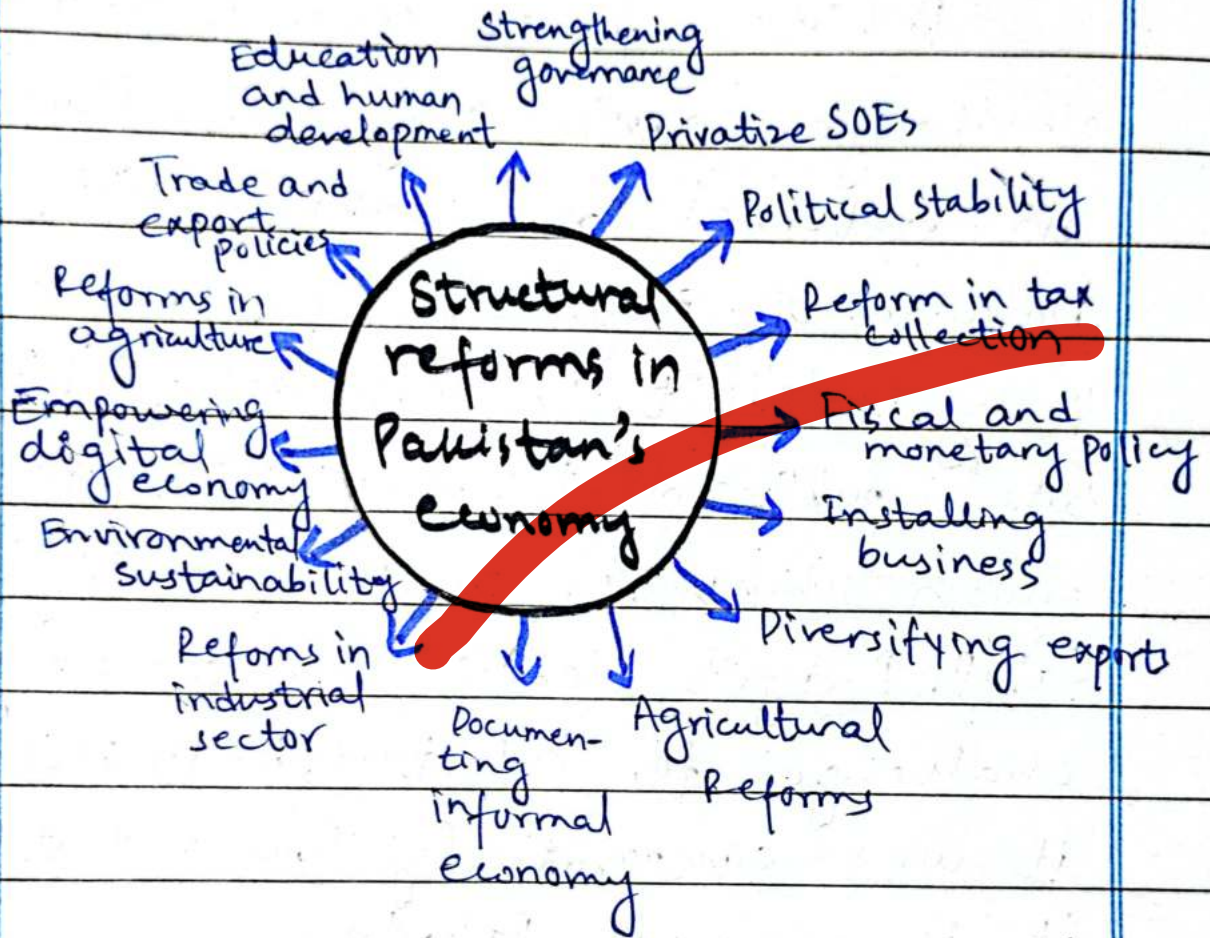 Structural
reforms in
Pakistan's
economy
Strengthening
governance
Privatize SOEs
Political stability
Reform in tax
collection
Fiscal and
monetary policy
Installing
business
Diversifying exports
Agricultural
Reforms
Documen-
ting
informal
economy
Reforms in
industrial
sector
Environmental
sustainability
Empowering
digital
economy
Reforms in
agriculture
Trade and
export
policies
Education
and human
development